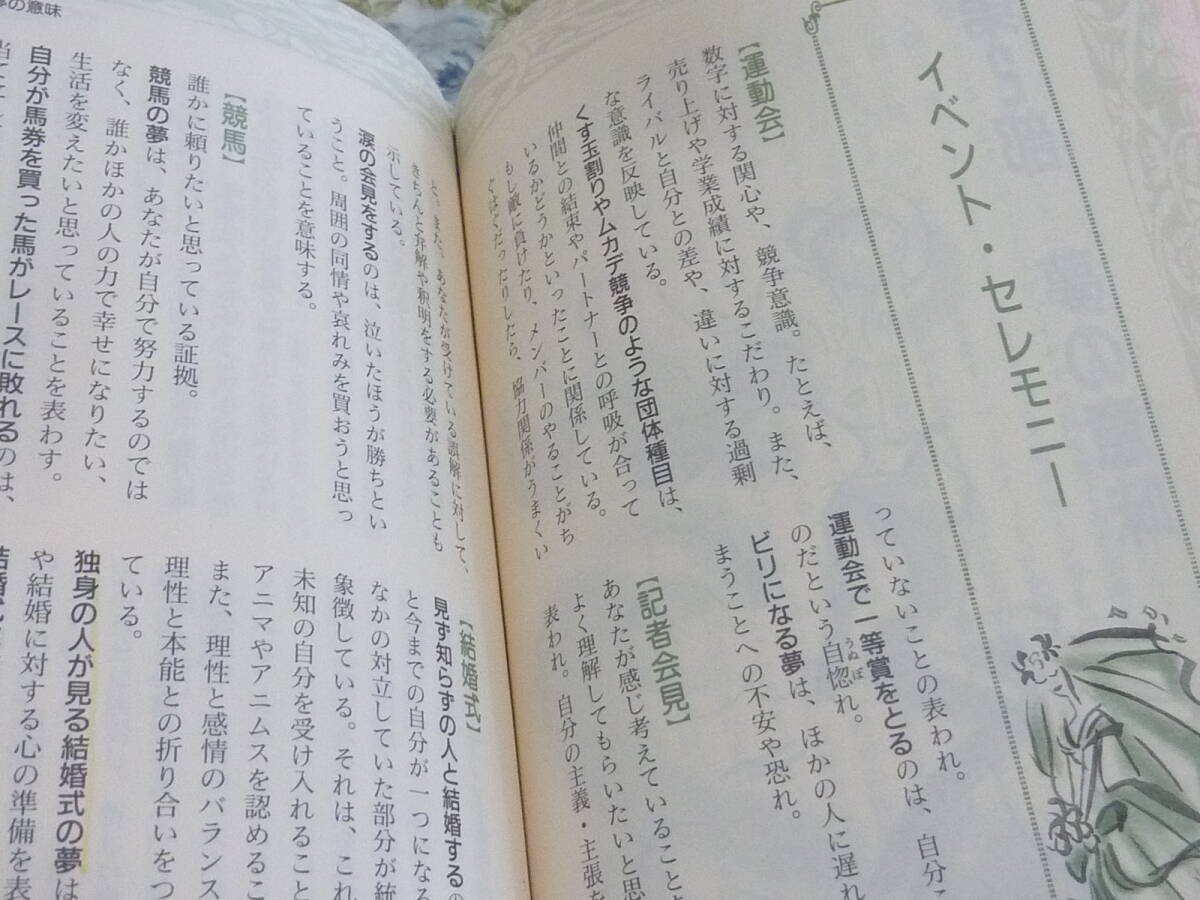 イベント・セレモニー
【運動会】
数字に対する関心や、競争意識。たとえば、
売り上げや学業成績に対するこだわり。また、
ライバルと自分との差や、違いに対する過剰
な意識を反映している。
くす玉割りやムカデ競争のような団体種目は、
仲間との結束やパートナーとの呼吸が合って
いるかどうかといったことに関係している。
もし敵に負けたり、メンバーのやることがち
ぐはぐだったりしたら、協力関係がうまくい
っていないことの表われ。
運動会で一等賞をとるのは、自分こ
のだという自惚れ。
うぬぼ
ビリになる夢は、ほかの人に遅れ
まうことへの不安や恐れ。
【記者会見】
あなたが感じ考えていることを
よく理解してもらいたいと思
表われ。自分の主義・主張を
の意味
と。また、あなたが受けている誤解に対して、
きちんと弁解や釈明をする必要があることも
示している。
涙の会見をするのは、泣いたほうが勝ちとい
うこと。周囲の同情や哀れみを買おうと思っ
ていることを意味する。
【競馬】
誰かに頼りたいと思っている証拠。
競馬の夢は、あなたが自分で努力するのでは
なく、誰かほかの人の力で幸せになりたい、
生活を変えたいと思っていることを表わす。
自分が馬券を買った馬がレースに敗れるのは、
【結婚式】
見ず知らずの人と結婚するの
と今までの自分が一つになる
なかの対立していた部分が統
象徴している。それは、これ
未知の自分を受け入れること
アニマやアニムスを認めるこ
また、理性と感情のバランス
理性と本能との折り合いをつ
ている。
独身の人が見る結婚式の夢は
や結婚に対する心の準備を表